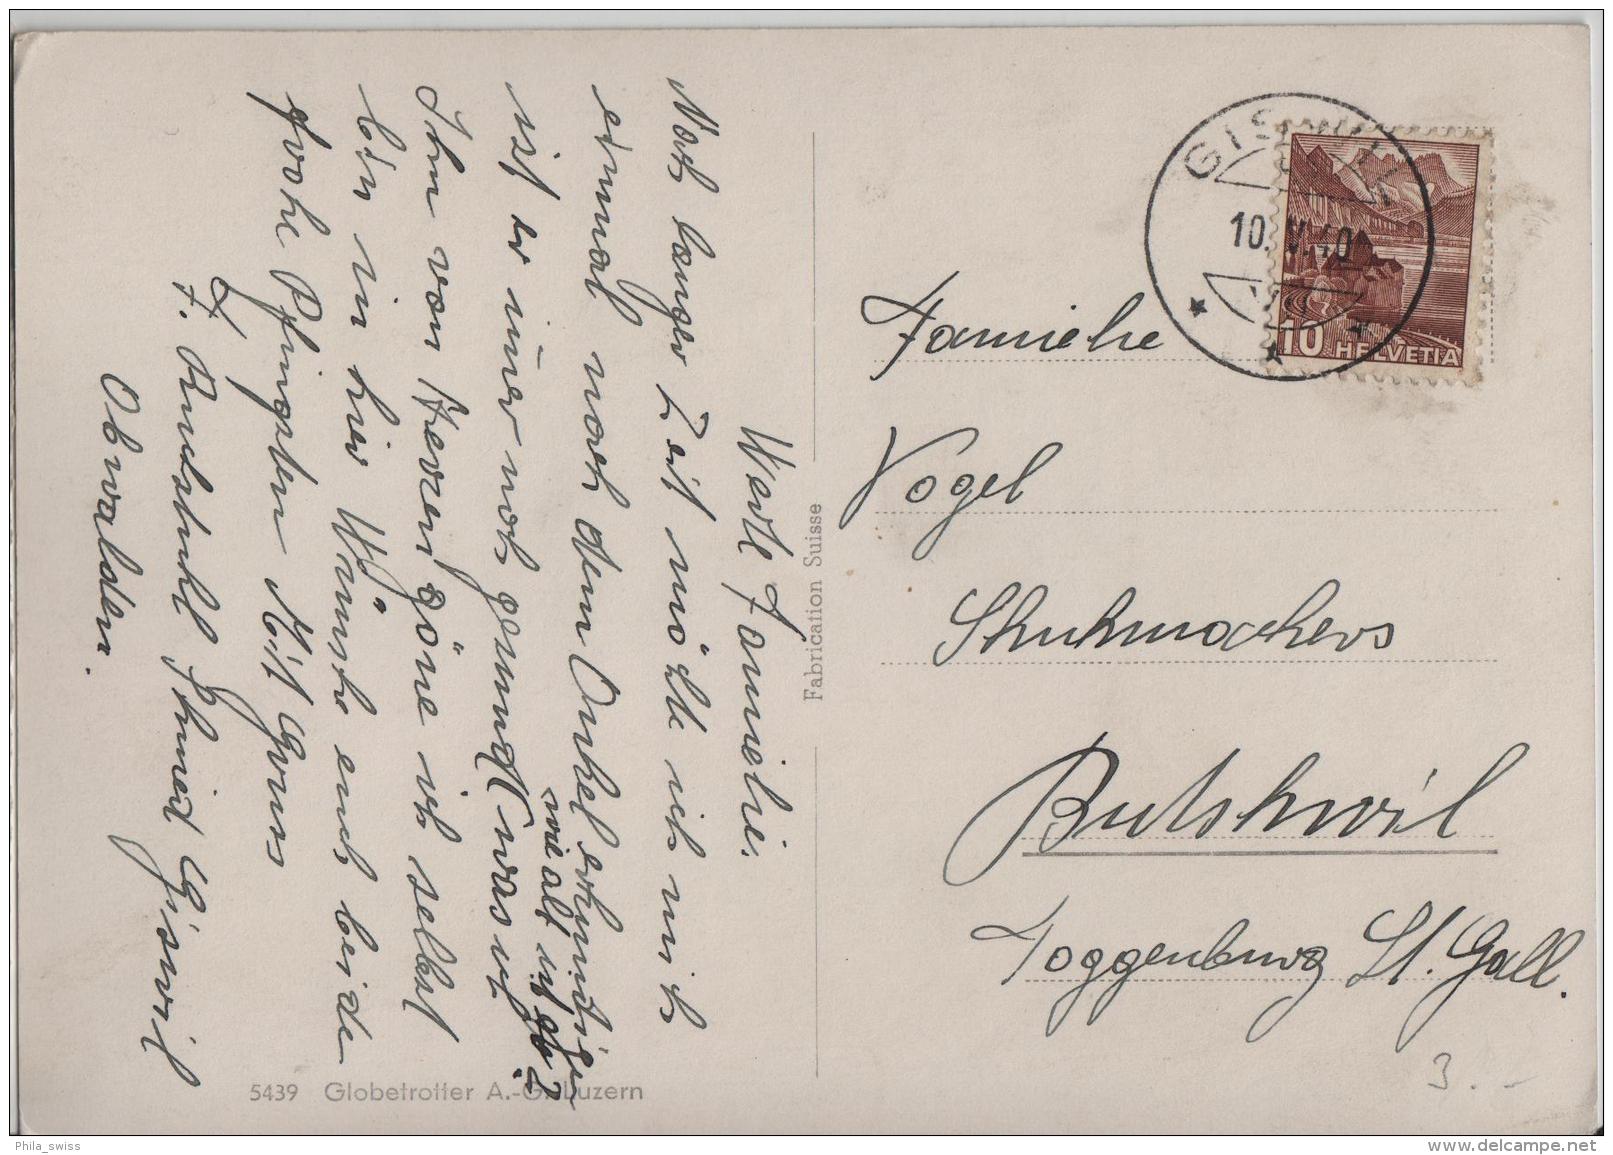 Werte Familie.
Nach langer Zeit möchte ich mich
einmal nach dem Onkel erkundigen
wie alt ist er?
ist er imer noch gesund (was
Ihm von Herzen göne ich selbst
bin in hier Wünsche euch beide
frohe Pfingsten Mit Gruss
F. Rudstuhl Schmid Giswil
Obwalden.
Fabrication Suisse
5439 Globetrotter A.-G. Luzern
GISWIL
10.V.40
10 HELVETIA
Familie
Vogel
Schuhmachers
Butschwil
Toggenburg St. Gall.
3.-
Phila_swiss
www.delcampe.net